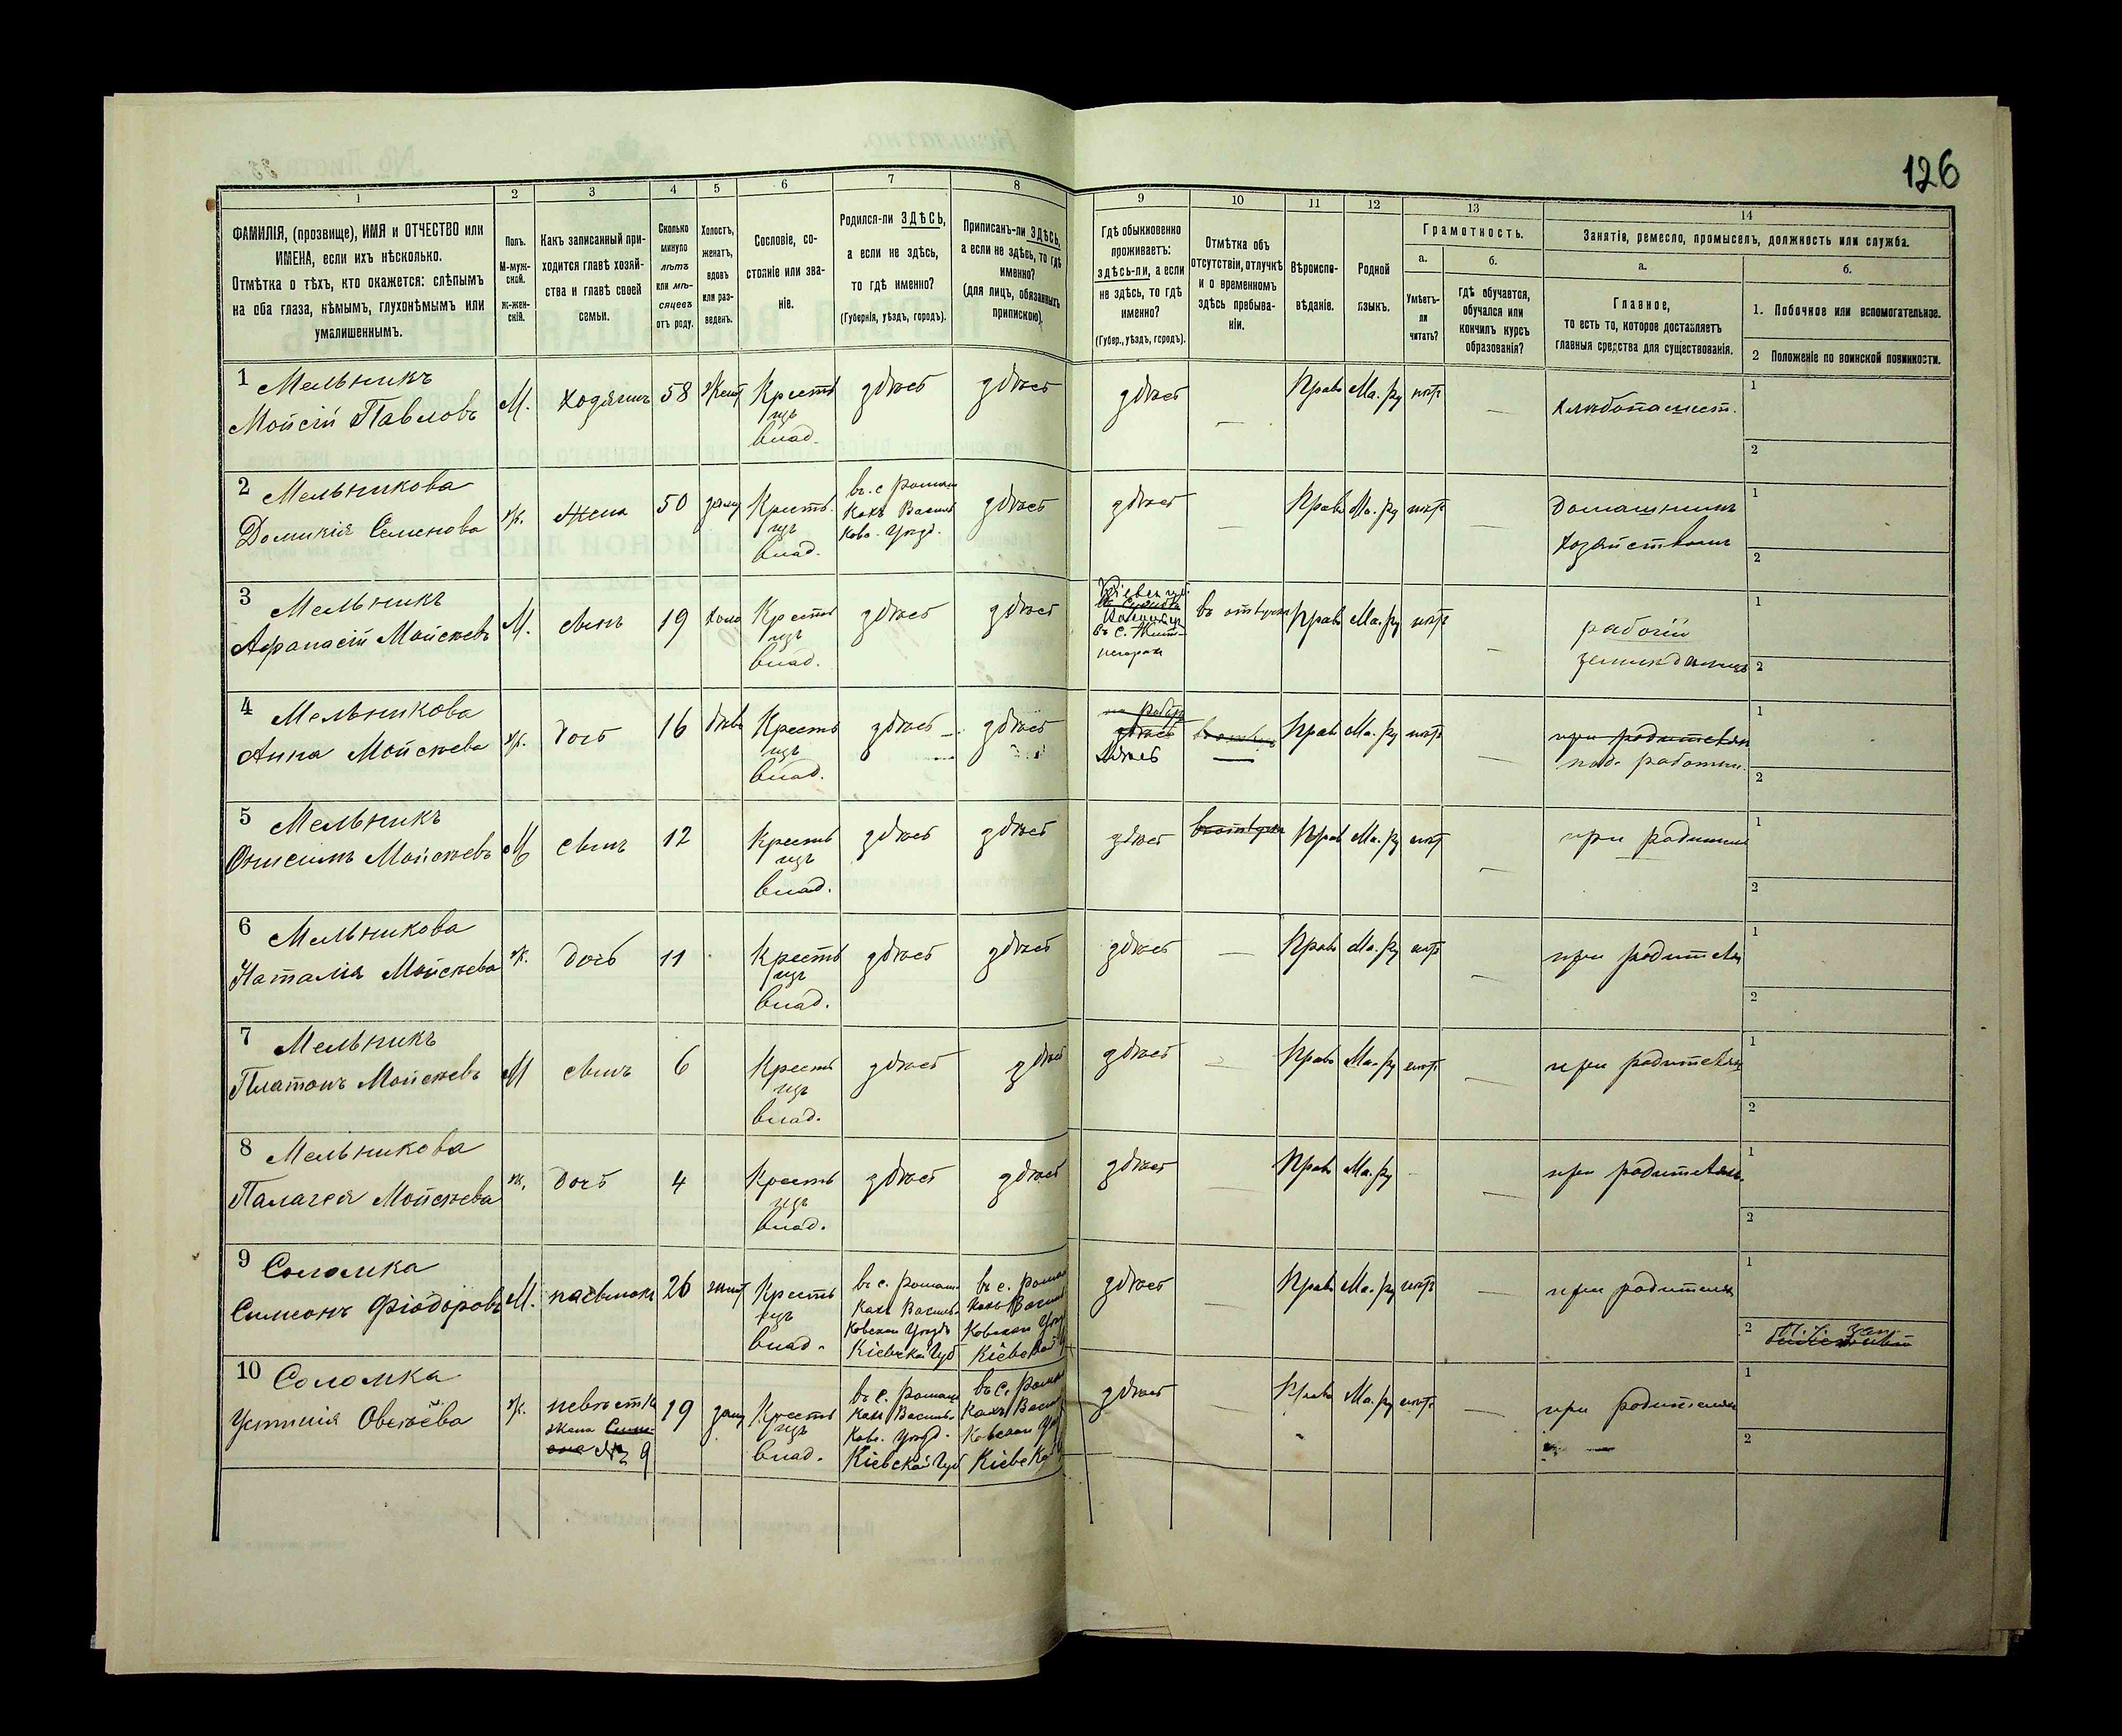 126
1
2
3
4
5
6
7
8
9
10
11
12
13
14
ФАМИЛІЯ, (прозвище), ИМЯ и ОТЧЕСТВО или
ИМЕНА, если ихъ нѣсколько.
Отмѣтка о тѣхъ, кто окажется: слѣпымъ
на оба глаза, нѣмымъ, глухонѣмымъ или
умалишеннымъ.
Полъ.
М-муж-
ской.
Ж-жен-
скій.
Какъ записанный при-
ходится главѣ хозяй-
ства и главѣ своей
семьи.
Сколько
минуло
лѣтъ
или мѣ-
сяцевъ
отъ роду.
Холостъ,
женатъ,
вдовъ
или раз-
веденъ.
Сословіе, со-
стояніе или зва-
ніе.
Родился-ли ЗДѢСЬ,
а если не здѣсь,
то гдѣ именно?
(Губернія, уѣздъ, городъ).
Приписанъ-ли ЗДѢСЬ,
а если не здѣсь, то гдѣ
именно?
(для лицъ, обязанныхъ
припискою)
Гдѣ обыкновенно
проживаетъ:
здѣсь-ли, а если
не здѣсь, то гдѣ
именно?
(Губер., уѣздъ, городъ).
Отмѣтка объ
отсутствіи, отлучкѣ
и о временномъ
здѣсь пребыва-
ніи.
Вѣроиспо-
вѣданіе.
Родной
языкъ.
Грамотность.
а.
б.
Умѣетъ-
ли
читать?
гдѣ обучается,
обучался или
кончилъ курсъ
образованія?
Занятіе, ремесло, промыселъ, должность или служба.
а.
б.
Главное,
то есть то, которое доставляетъ
главныя средства для существованія.
1. Побочное или вспомогательное.
2 Положеніе по воинской повинности.
1 Мельникъ
Мойсій Павловъ
М.
Ходяинъ
58
Крестъ
изъ
влад.
здѣсь
здѣсь
здѣсь
—
Прав
Ма. ру
нѣт
—
1
2
2 Мельникова
Домикія Семенова
ж.
Жена
50
замуж
Крестъ.
изъ
влад.
въ с Рома
кахъ Василь
ков. Уезд.
здѣсь
здѣсь
—
Прав
Ма. ру
нѣт
—
Домашнимъ
хозяйствомъ
1
2
3 Мельникъ
Афанасій Мойсѣевъ
М.
сынъ
19
холо
Крестъ
изъ
влад.
здѣсь
здѣсь
въ отлучкѣ
Прав
Ма. ру
нѣт
—
рабочій
1
2
4 Мельникова
Анна Мойсѣева
ж.
дочь
16
дѣв
Крестъ
изъ
влад.
здѣсь
здѣсь
здѣсь
здѣсь
—
Прав
Ма. ру
нѣт
—
при родителях
под. работни.
1
2
5 Мельникъ
Онисимъ Мойсѣевъ
М
сынъ
12
Крестъ
изъ
влад.
здѣсь
здѣсь
здѣсь
Прав
Ма. ру
нѣт
—
при родител
1
2
6 Мельникова
Наталія Мойсѣева
ж.
дочь
11
Крестъ
изъ
влад.
здѣсь
здѣсь
здѣсь
—
Прав
Ма. ру
нѣт
—
при родителях
1
2
7 Мельникъ
Платонъ Мойсѣевъ
М
сынъ
6
Крестъ
изъ
влад.
здѣсь
здѣсь
здѣсь
—
Прав
Ма. ру
нѣт
—
при родителях
1
2
8 Мельникова
Палагея Мойсѣева
ж.
дочь
4
Крестъ
изъ
влад.
здѣсь
здѣсь
здѣсь
—
Прав
Ма. ру
—
при родителях.
1
2
9 Соломка
Симеонъ Фіодоровъ
М.
пасынокъ
26
Крестъ
изъ
влад.
въ с. Рома
кахъ Василь
ковском Уезд
Кіевской Губ
въ с. Рома
кахъ Васил
ковском Уез
Кіевской
здѣсь
—
Прав
Ма. ру
нѣт
—
при родителях
1
2
10 Соломка
Устинія Овсѣева
ж.
невѣстка
жена
№ 9
19
замуж
Крестъ
изъ
влад.
въ с. Рома
кахъ Василь
ков. Уезд.
Кіевской Губ
въ с. Рома
кахъ Васил
ковском Уез
Кіевско
здѣсь
—
Прав
Ма. ру
нѣт
—
при родителях
1
2